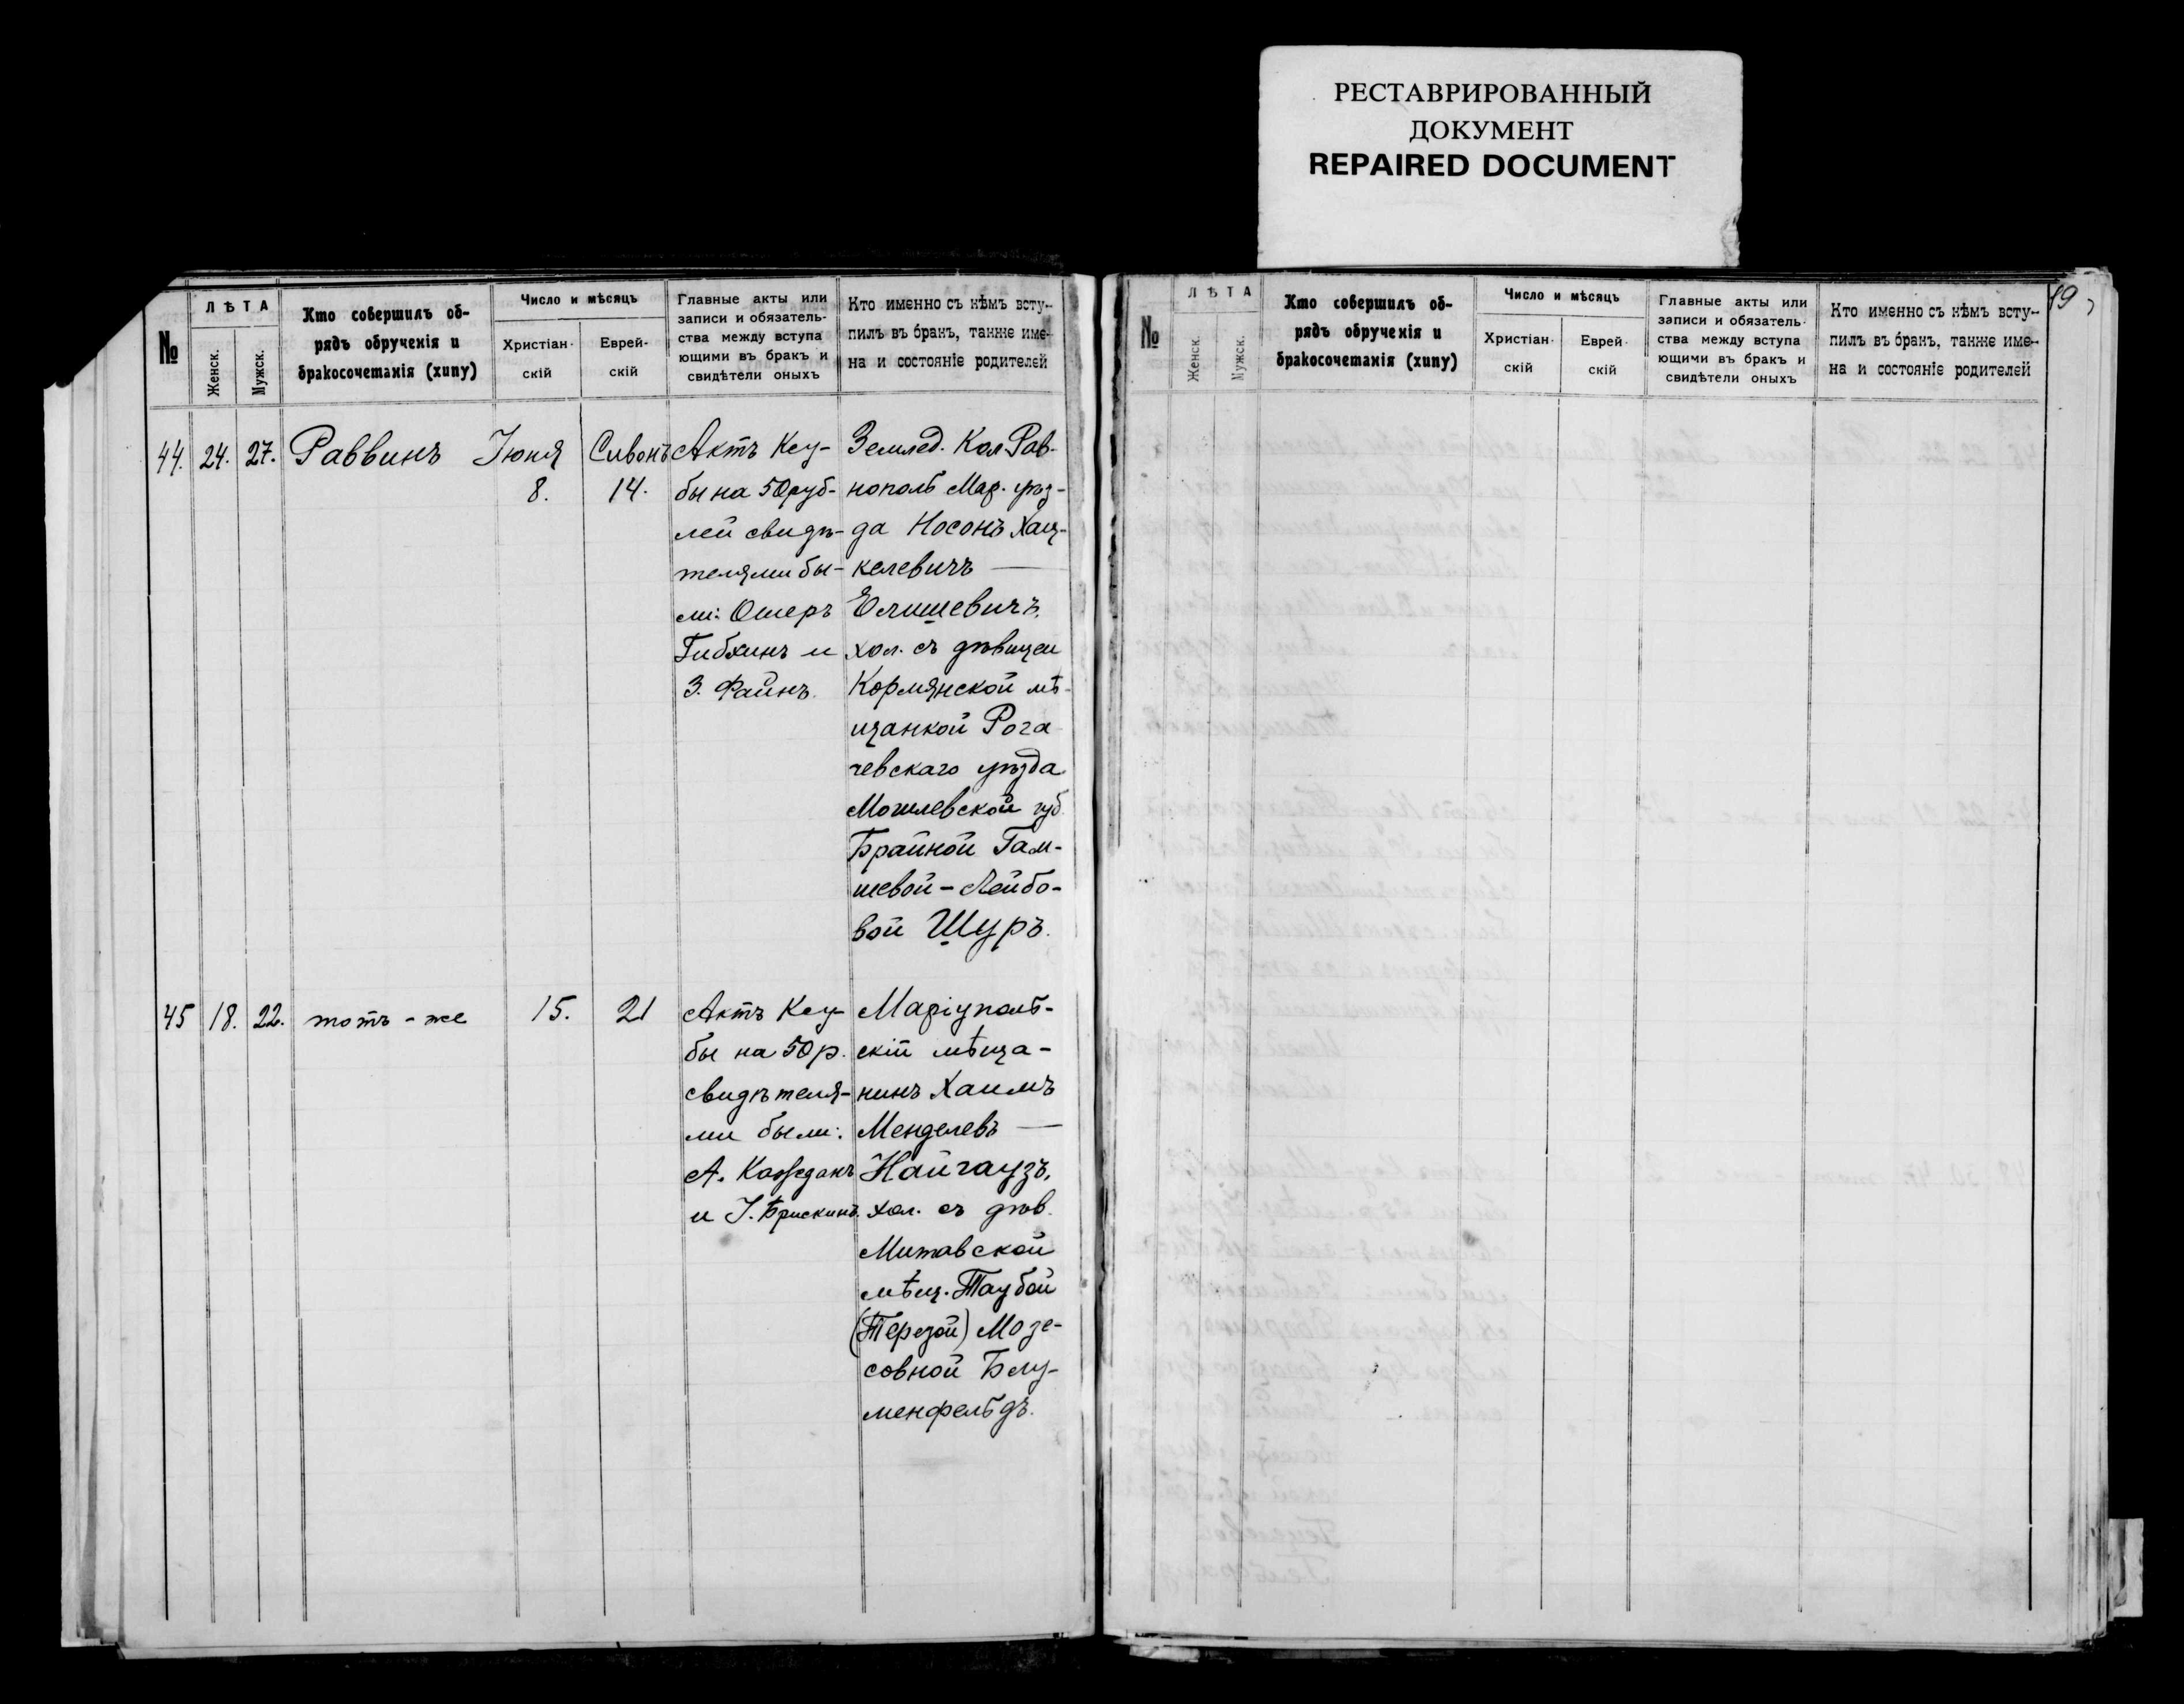 РЕСТАВРИРОВАННЫЙ
ДОКУМЕНТ
REPAIRED DOCUMENT
№
ЛѢТА
Женск.
Мужск.
Кто совершилъ об-
рядъ обрученія и
бракосочетанія (хипу)
Число и мѣсяцъ
Христіан-
скій
Еврей-
скій
Главные акты или
записи и обязатель-
ства между вступа
ющими въ бракъ и
свидѣтели оныхъ
Кто именно съ кѣмъ всту-
пилъ въ бракъ, также име-
на и состояніе родителей
44. 24. 27. Раввинъ
Іюня
8.
Сивонъ
14.
Актъ Кеу-
бы на 50 руб-
лей свидѣ-
телями бы-
ли: Ошеръ
Гибхинъ и
З. Файнъ.
Землед. Кол. Рав-
нополь Мар. уѣз-
да Носонъ Хац-
келевичъ —
Елишевичъ,
хол. съ дѣвицей
Кормянской мѣ-
щанкой Рога
чевскаго уѣзда
Могилевской губ.
Брайной Гам-
шевой - Лейбо-
вой Шуръ.
45 18. 22. тотъ - же
15.
21
Актъ Кеу-
бы на 50 р.
свидѣтеля-
ми были:
А.
и І. Брискинъ.
Маріуполь-
скій мѣща-
нинъ Хаимъ
Менделевъ —
Найгаузъ,
хол. съ дѣв.
Митавской
мѣщ. Таубой
(Терезой) Мозе-
совной Блу-
менфельдъ.
19
№
ЛѢТА
Женск.
Мужск.
Кто совершилъ об-
рядъ обрученія и
бракосочетанія (хипу)
Число и мѣсяцъ
Христіан-
скій
Еврей-
скій
Главные акты или
записи и обязатель-
ства между вступа
ющими въ бракъ и
свидѣтели оныхъ
Кто именно съ кѣмъ всту-
пилъ въ бракъ, также име-
на и состояніе родителей